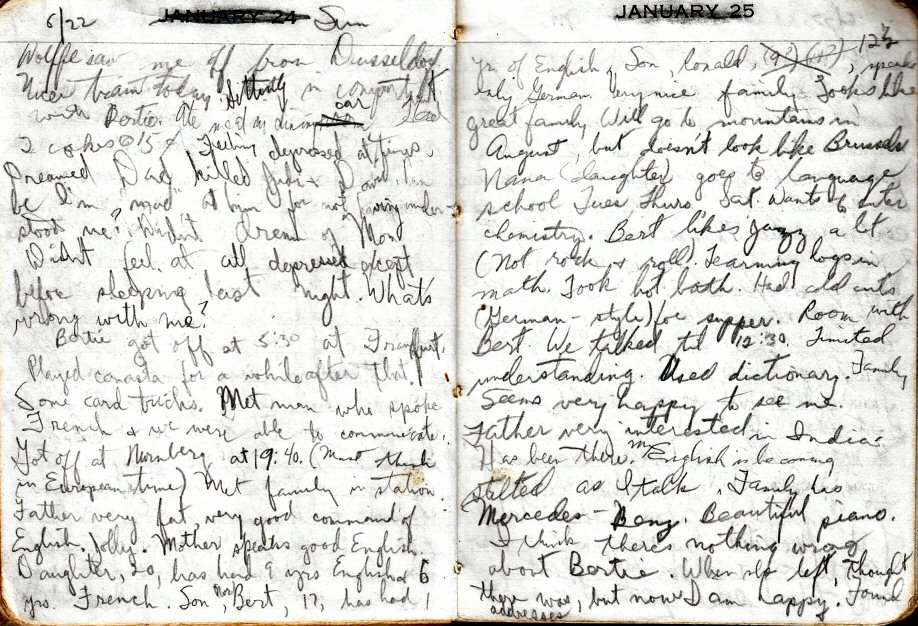 6/22 JANUARY 24 Sun
Wolffe saw me off from Dusseldorf.
Nice train today. Sitting in compartment
with Bertie. Ate meal in dining car
2 cokes @ 15¢ Feeling depressed at times.
Dreamed Dad killed Judi &
be I'm "mad" at him for not having under-
stood me? Didn't dream of Mom
Didn't feel at all depressed except
before sleeping last night. What's
wrong with me?
Bertie got off at 5:30 at Frankfurt.
Played canasta for a while after that.
Some card tricks. Met man who spoke
French & we were able to communicate.
Got off at Nurnberg at 19:40. (Must think
in European time) Met family in station.
Father very fat, very good command of
English. Jolly. Mother speaks good English.
Daughter, 20, has had 9 yrs English & 6
yrs. French. Son, Bert, 17, has had 1
JANUARY 25
yr of English. Son, Ronald, 12½, speaks
only German. Very nice family. Looks like
great family. Will go to mountains in
August, but doesn't look like Brussels
Nana (daughter) goes to language
school Tues Thurs Sat. Wants to enter
chemistry. Bert likes jazz a lt
(Not rock & roll). Learning logs in
math. Took hot bath. Had cold cuts
(German-style) for supper. Room with
Bert. We talked til 12:30. Limited
understanding. Used dictionary. Family
seems very happy to see me.
Father very interested in India.
Has been there. My English is becoming
stilted as I talk. Family has
Mercedes-Benz. Beautiful piano.
I think there's nothing wrong
about Bertie. When he left, thought
there was, but now I am happy. Found
addresses